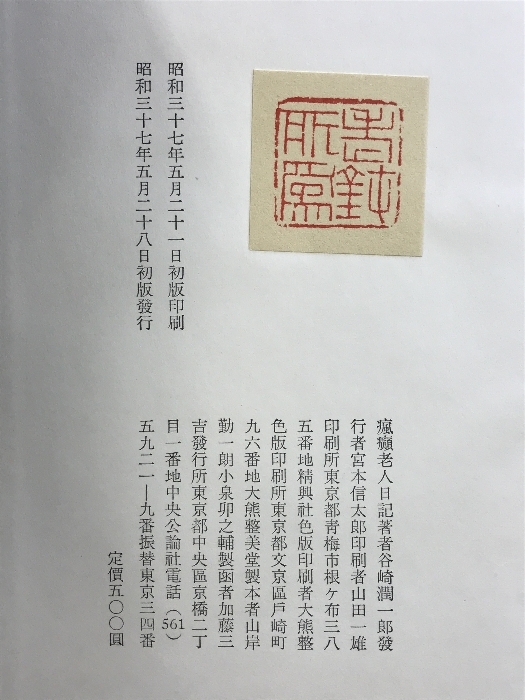 昭和三十七年五月二十一日初版印刷
昭和三十七年五月二十八日初版發行
瘋癲老人日記著者谷崎潤一郎發
行者宮本信太郎印刷者山田一雄
印刷所東京都青梅市根ヶ布三八
五番地精興社色版印刷者大熊整
色版印刷所東京都文京區戶崎町
九六番地大熊整美堂製本者山岸
勤一朗小泉卯之輔製函者加藤三
吉發行所東京都中央區京橋二丁
目一番地中央公論社電話（561）
五九二一―九番振替東京三四番
定價五〇〇圓